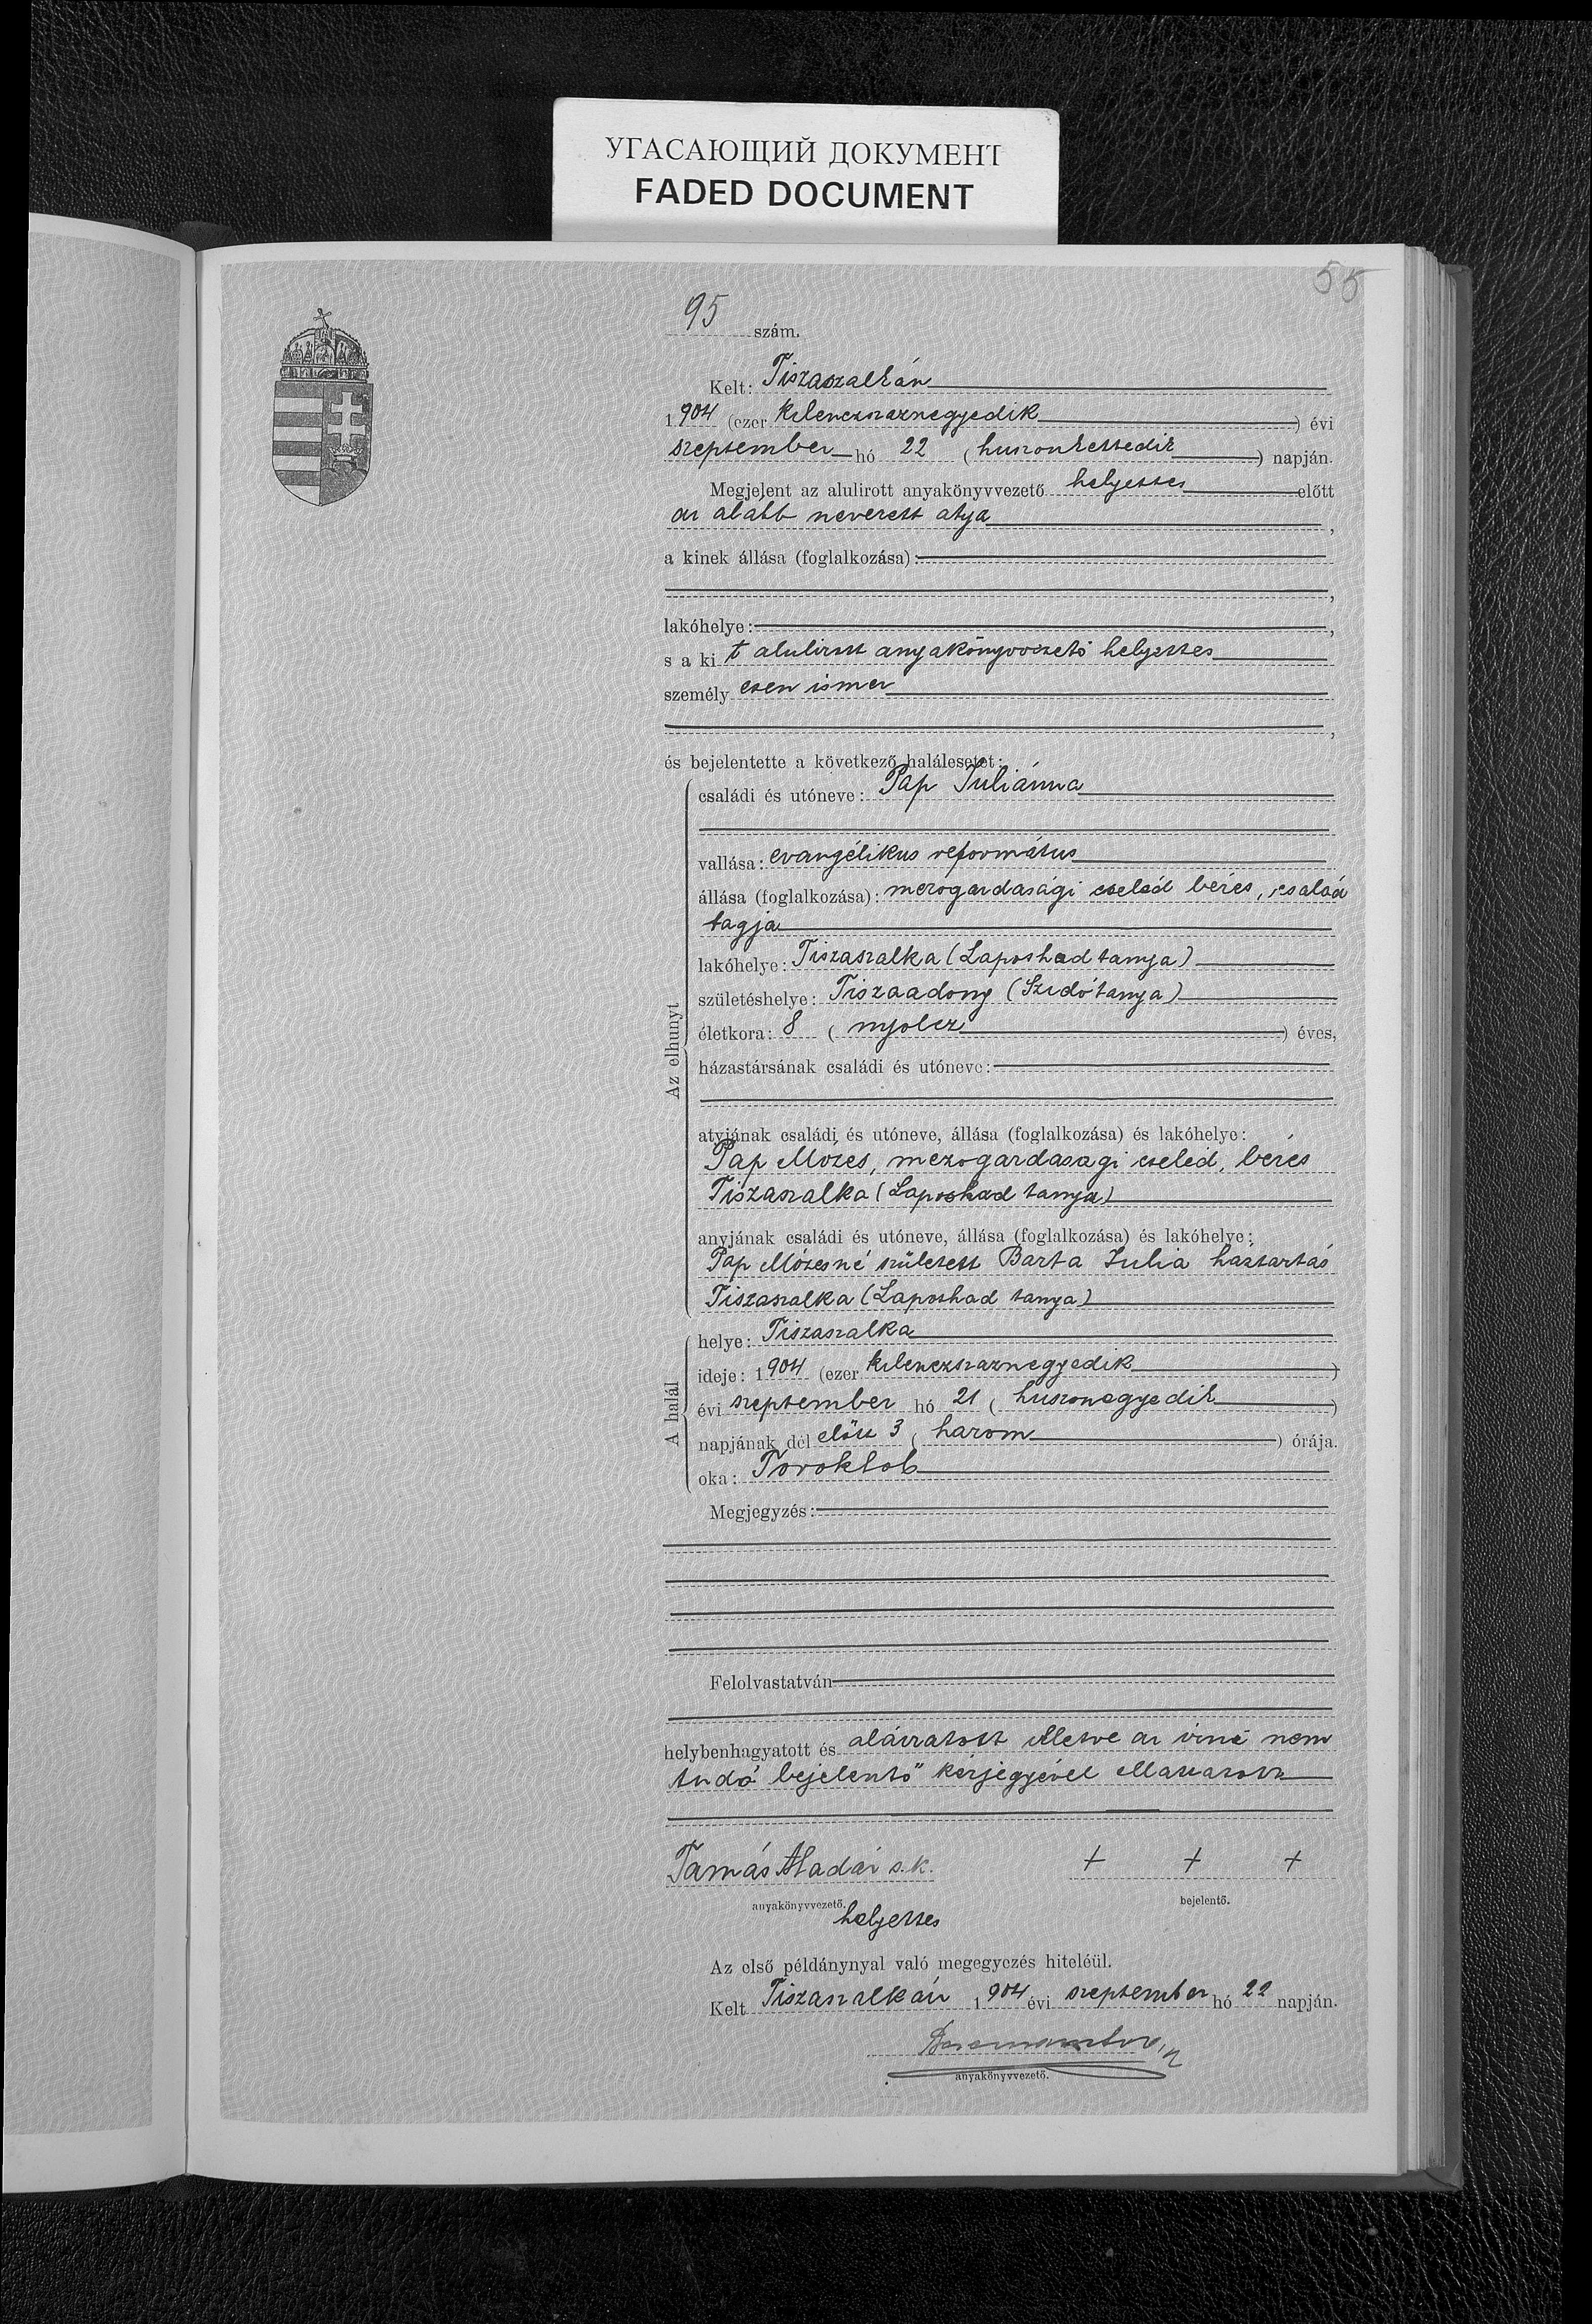 УГАСАЮЩИЙ ДОКУМЕНТ
FADED DOCUMENT
55
95 szám.
Kelt: Tiszaszalkán
1904 (ezer kilenczszáznegyedik) évi
szeptember hó 22 (huszonkettedik) napján.
Megjelent az alulirott anyakönyvvezető helyettes előtt
az alább nevezett atya,
a kinek állása (foglalkozása):
,
lakóhelye: ,
s a kit alulirott anyakönyvvezető helyettes
személyesen ismer
,
és bejelentette a következő halálesetet:
Az elhunyt
családi és utóneve: Pap Juliánna
vallása: evangélikus református
állása (foglalkozása): mezogazdasági cseléd béres, család
tagja
lakóhelye: Tiszaszalka (Laposhad tanya)
születéshelye: Tiszaadony (Szidó tanya)
életkora: 8 (nyolcz) éves,
házastársának családi és utóneve:
atyjának családi és utóneve, állása (foglalkozása) és lakóhelye:
Pap Mózes, mezogazdasagi cseléd, béres
Tiszaszalka (Laposhad tanya)
anyjának családi és utóneve, állása (foglalkozása) és lakóhelye:
Pap Mózesné született Barta Julia háztartás
Tiszaszalka (Laposhad tanya)
A halál
helye: Tiszaszalka
ideje: 1904 (ezer kilenczszáznegyedik)
évi szeptember hó 21 (huszonegyedik)
napjának dél előtt 3 (harom) órája.
oka: Toroklob
Megjegyzés:
Felolvastatván
helybenhagyatott és aláiratott illetve az irni nem
tudó bejelentő kézjegyével
Tamás Aladár s.k. + + +
anyakönyvvezető. bejelentő.
helyettes
Az első példánynyal való megegyezés hiteléül.
Kelt Tiszaszalkán 1904 évi szeptember hó 22 napján.
anyakönyvvezető.